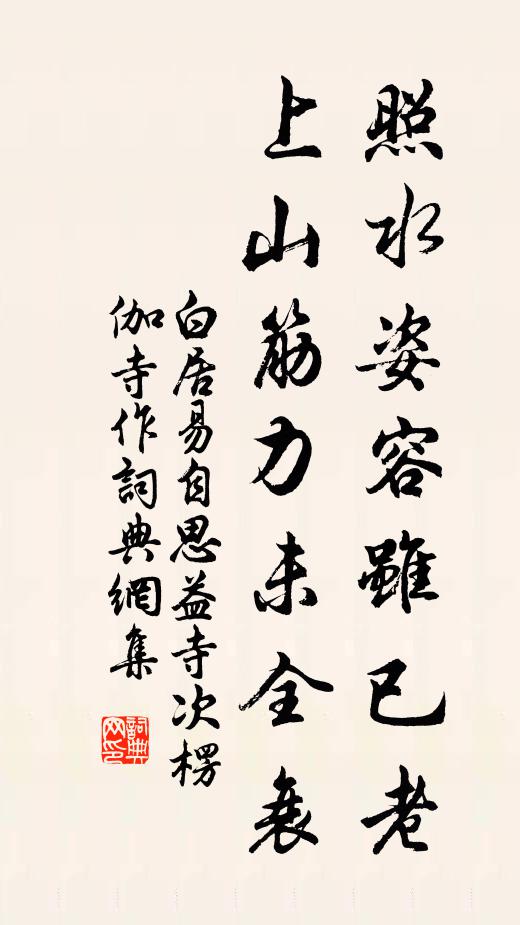 照水姿容雖已老
上山筋力未全衰
白居易自思益寺次楞
伽寺作詞典網集
詞典網印